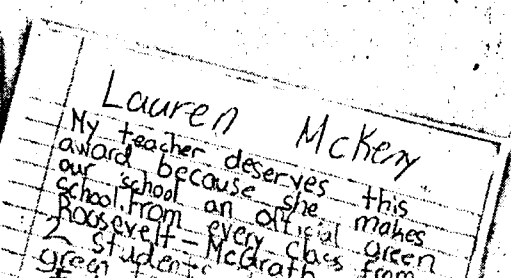 Lauren McKeny
My teacher deserves this
award because she makes
our school an official green
school. From every class
Roosevelt-McGrath from
2 students
green